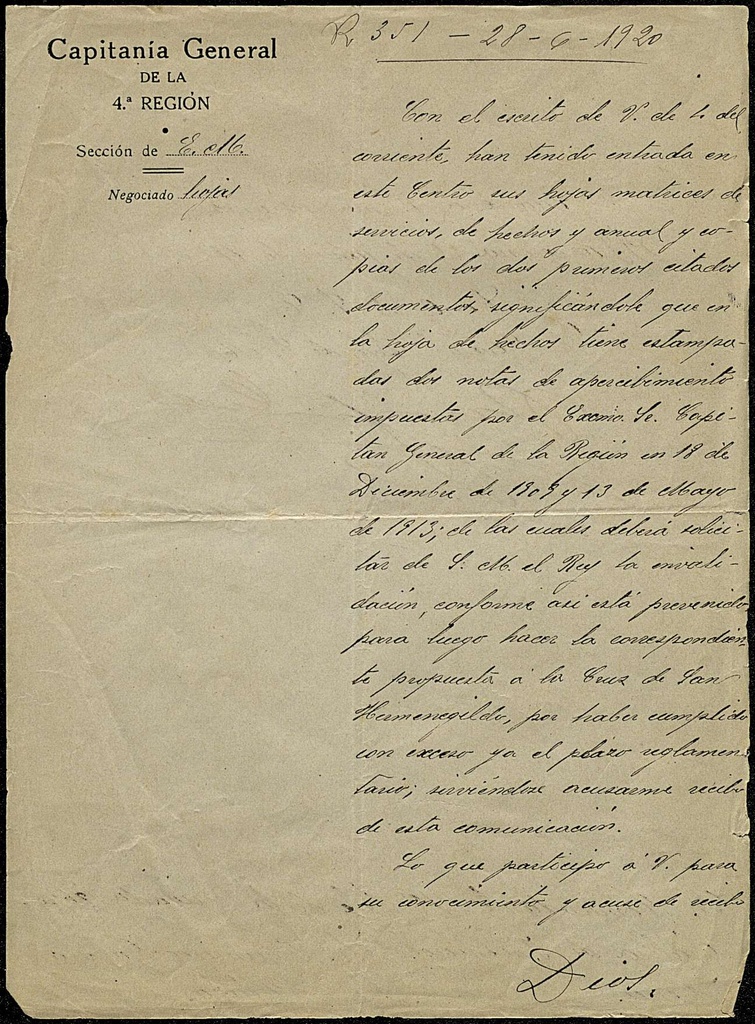 Capitanía General
DE LA
4.ª REGIÓN
Sección de E. M.
Negociado hojas
R 351 - 28-6-1920
Con el escrito de V. de 4. del
corriente, han tenido entrada en
este Centro sus hojas matrices de
servicios, de hechos y anual y co-
pias de los dos primeros citados
documentos, significándole que en
la hoja de hechos tiene estampa-
das dos notas de apercibimiento
impuestas por el Excmo. Sr. Capi-
tan General de la Región en 18 de
Diciembre de 1909 y 13 de Mayo
de 1913; de las cuales deberá solici-
tar de S. M. el Rey la invali-
dación, conforme asi está prevenido
para luego hacer la correspondien-
te propuesta á la Cruz de San
Hermenegildo, por haber cumplido
con exceso ya el plazo reglamen-
tario; sirviéndose acusarme recibo
de esta comunicación.
Lo que participo á V. para
su conocimiento y acuse de recibo
Dios.